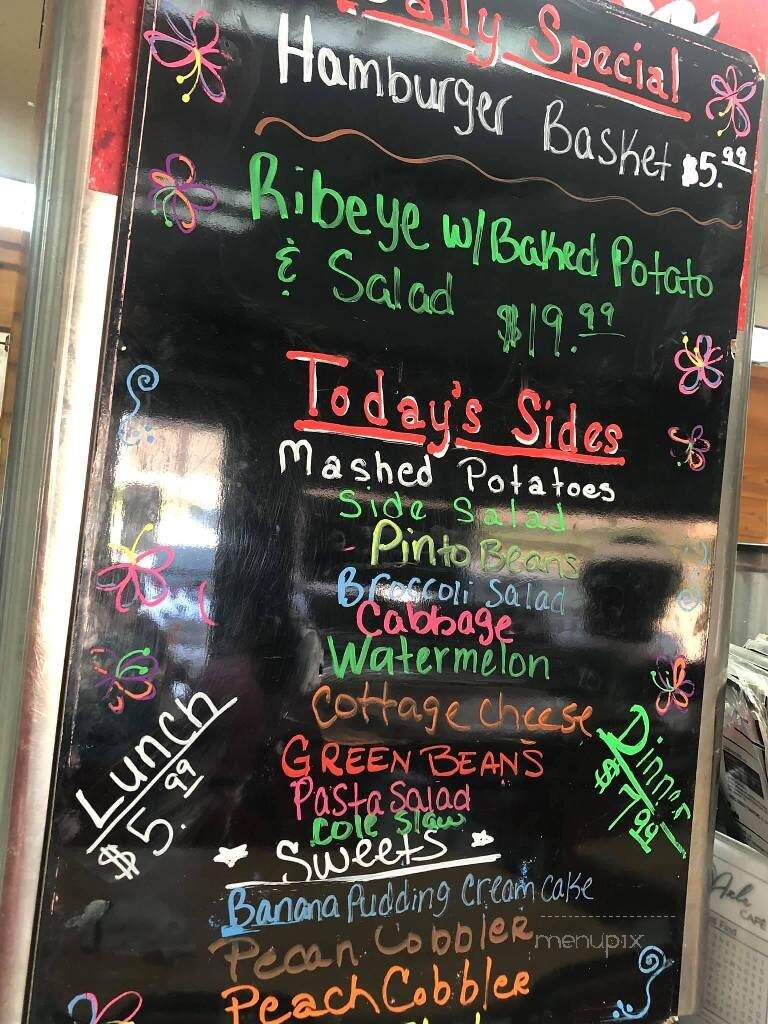 Daily Special
Hamburger Basket $5.99
Ribeye w/Baked Potato
& Salad $19.99
Today's Sides
Mashed Potatoes
Side Salad
Pinto Beans
Broccoli Salad
Cabbage
Watermelon
Cottage cheese
GREEN BEANS
Pasta Salad
Cole Slaw
Lunch
$5.99
Dinner
$7.99
Sweets
Banana Pudding Cream cake
Pecan Cobbler
Peach Cobbler
menupix
CAFE